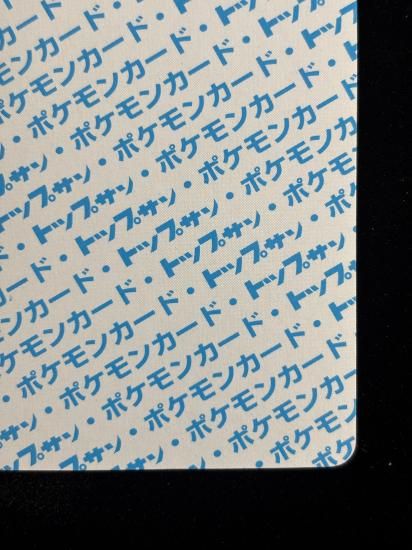 ポケモンカード
ポケモンカード・
・ポケモンカード・トッ
ン・ポケモンカード・トップ
サン・ポケモンカード・トップサ
トップサン・ポケモンカード・
・トップサン・ポケモンカード
ド・トップサン・ポケモンカ
カード・トップサン・ポケ
モンカード・トップサン・ポ
ケモンカード・トップサン・
ポケモンカード・トップサン
・ポケモンカード・トップ
サン・ポケモンカード・
トップサン・ポケモンカード
・ポケモンカ
ポケ